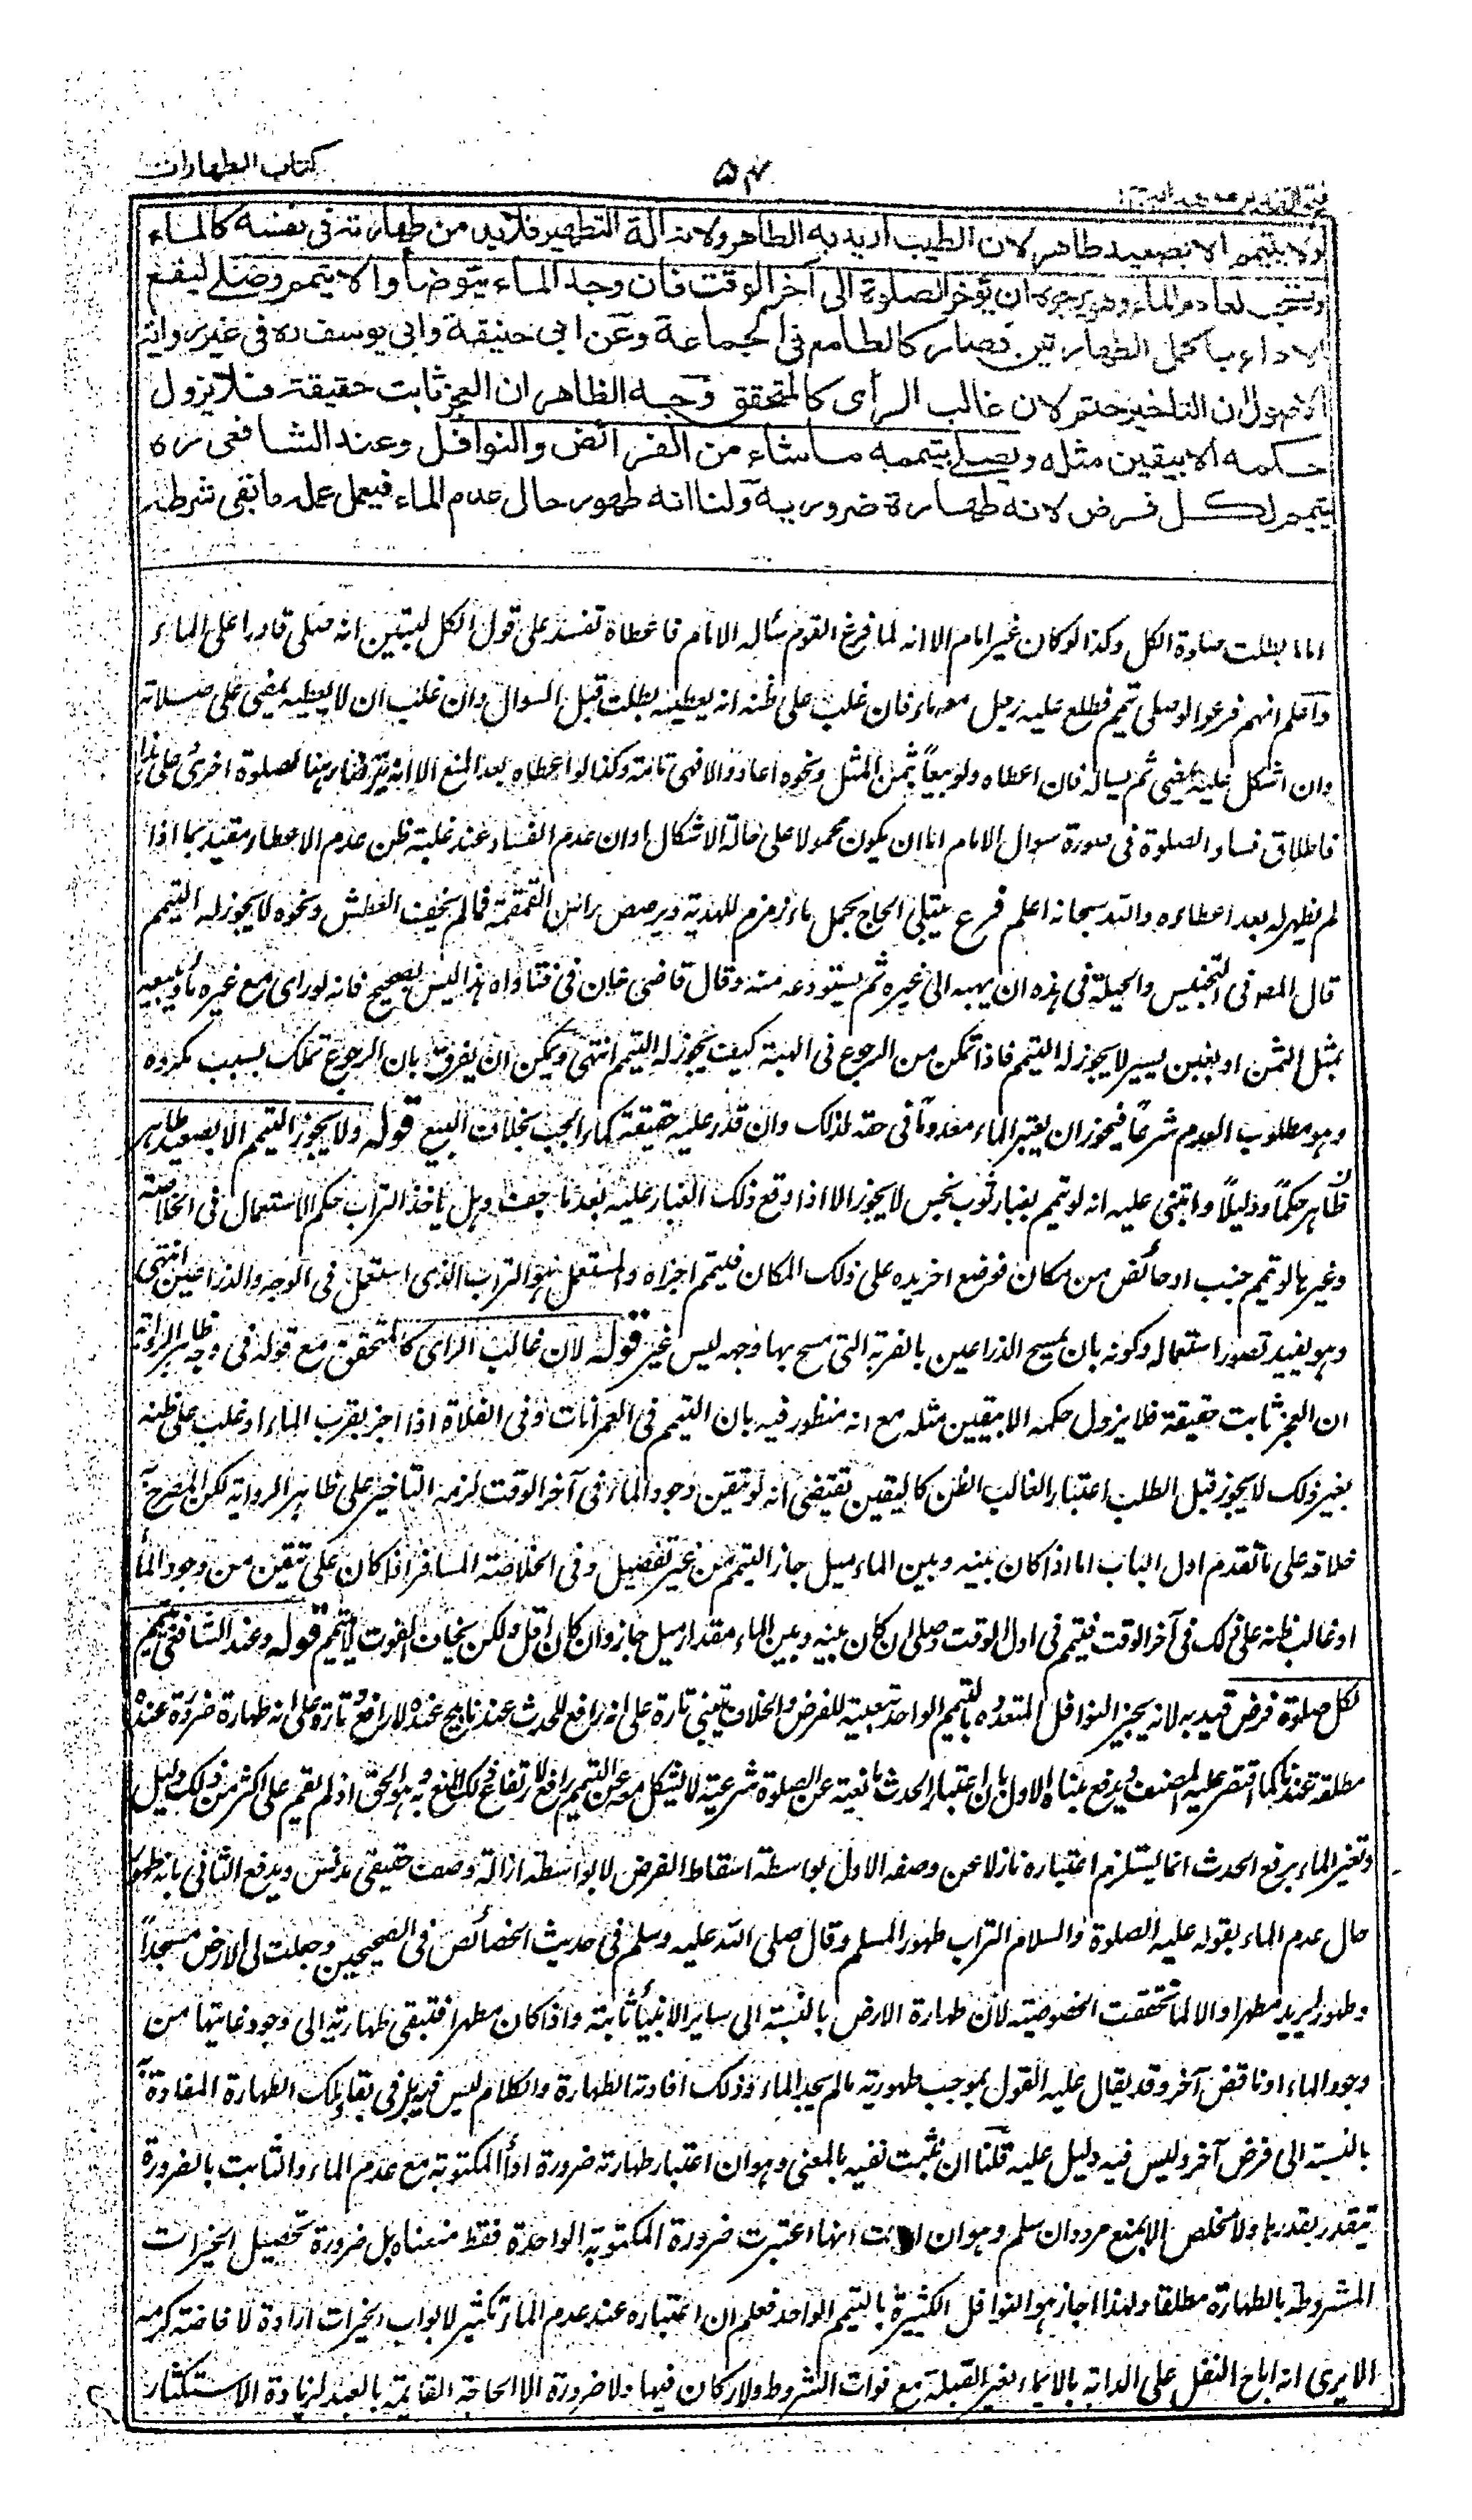 كتاب الطهارات
۵۴
فتح القدير مع هداية ج ا
ولا يتيمم الا بصعيد طاهر لان الطيب اريد به الطاهر ولانه الة التطهير فلا بد من طهارته في نفسه كالماء
ويستحب لعادم الماء وهو يرجوه ان يؤخر الصلوة الى اخر الوقت فان وجد الماء يتوضأ والا يتيمم وصلى ليقع
الاداء باكمل الطهارتين فصار كالطامع في الجماعة وعن ابي حنيفة وابي يوسف ره في غير رواية
الاصول ان التاخير حتم لان غالب الرأى كالمتحقق وجه الظاهر ان العجز ثابت حقيقة فلا يزول
حكمه الا بيقين مثله ويصلى بتيممه ماشاء من الفرائض والنوافل وعند الشافعى ره
يتيمم لكل فرض لانه طهارة ضرورية ولنا انه طهور حال عدم الماء فيعمل عمله ما بقى شرطه
اماما بطلت صلوة الكل وكذا لو كان غير امام الا انه لما فرغ القوم سأله الامام فاعطاه تفسد على قول الكل لتبين انه صلى قادرا على الماء
واعلم انهم فرعوا لو صلى بتيمم فطلع عليه رجل معه ماء فان غلب على ظنه انه يعطيه بطلت قبل السوال وان غلب ان لا يعطيه يمضى على صلاته
وان اشكل عليه يمضى ثم يساله فان اعطاه ولو بيعاً بثمن المثل ونحوه اعاد والا فهى تامة وكذا لو اعطاه بعد المنع الا انه يتوضأ هنا لصلوة اخرى على هذا
فاطلاق فساد الصلوة فى صورة سوال الامام اما ان يكون محمولا على حالة الاشكال او ان عدم الفساد عند غلبة ظن عدم الاعطاء مقيد بما اذا
لم يظهر له بعد اعطاءه والله سبحانه اعلم فرع يبتلى الحاج بحمل ماء زمزم للهدية ويرصص راس القمقمة فما لم يخف العطش ونحوه لا يجوز له التيمم
قال المص فى التجنيس والحيلة فى هذه ان يهبه الى غيره ثم يستودعه منه وقال قاضى خان فى فتاواه هذا ليس بصحيح فانه لو راى مع غيره ماء يبيعه
بمثل الثمن او بغبن يسير لا يجوز له التيمم فاذا تمكن من الرجوع فى الهبة كيف يجوز له التيمم انتهى ويمكن ان يفرق بان الرجوع تملك بسبب مكروه
وهو مطلوب العدم شرعاً فيجوز ان يعتبر الماء معدوماً فى حقه لذلك وان قدر عليه حقيقة كماء الجب بخلاف البيع قوله ولا يجوز التيمم الا بصعيد طاهر
ظاهر حكماً ودليلاً وابتنى عليه انه لو تيمم بغبار ثوب نجس لا يجوز الا اذا وقع ذلك الغبار عليه بعد ما جف وهل ياخذ التراب حكم الاستعمال فى الخلاصة
وغيرها لو تيمم جنب او حائض من مكان فوضع اخر يده على ذلك المكان فتيمم اجزاه والمستعمل هو التراب الذى استعمل فى الوجه والذراعين انتهى
وهو يفيد تصور استعماله وكونه بان يمسح الذراعين بالضربة التى مسح بها وجهه ليس غير قوله لان غالب الراى كالمتحقق مع قوله فى وجه ظاهر الرواية
ان العجز ثابت حقيقة فلا يزول حكمه الا بيقين مثله مع انه منظور فيه بان التيمم فى العمرانات وفى الفلاة اذا اخبر بقرب الماء او غلب على ظنه
بغير ذلك لا يجوز قبل الطلب اعتبارا لغالب الظن كاليقين تقتضى انه لو تيقن وجود الماء فى آخر الوقت لزمه التأخير على ظاهر الرواية لكن المصرح به
خلافه على ما تقدم اول الباب اما اذا كان بينه وبين الماء ميل جاز التيمم من غير تفصيل وفى الخلاصة المسافر اذا كان على تيقن من وجود الماء
او غالب ظنه على ذلك فى آخر الوقت فتيمم فى اول الوقت وصلى ان كان بينه وبين الماء مقدار ميل جاز وان كان اقل ولكن يخاف الفوت لا يتيمم قوله وعند الشافعى يتيمم
لكل صلوة فرض قيد به لانه يجيز النوافل المتعددة بالتيمم الواحد تبعية للفرض والخلاف يبتنى تارة على انه رافع للحدث عندنا مبيح عنده لا رافع وتارة على انه طهارة ضرورة عنده
مطلقة عندنا كما اقتصر عليه المصنف ويدفع بناه الاول بان اعتبار الحدث مانعية عن الصلوة شرعية لا يشكل معه ان التيمم رافع لارتفاع ذلك المنع به وهو الحق اذ لم يقم على اكثر من ذلك دليل
وتغير الماء برفع الحدث انما يستلزم اعتباره نازلا عن وصفه الاول بواسطة اسقاط الفرض لا بواسطة ازالة وصف حقيقى مدنس ويدفع الثانى بانه طهور
حال عدم الماء بقوله عليه الصلوة والسلام التراب طهور المسلم وقال صلى الله عليه وسلم فى حديث الخصائص فى الصحيحين وجعلت لى الارض مسجداً
وطهورا يريد مطهرا والا لما تحققت الخصوصية لان طهارة الارض بالنسبة الى سائر الانبيأ ثابتة واذا كان مطهرا فتبقى طهارته الى وجود غايتها من
وجود الماء او ناقض آخر وقد يقال عليه القول بموجب طهوريته ما لم يجد الماء وذلك افادته الطهارة والكلام ليس فيه بل فى بقاء تلك الطهارة المفادة به
بالنسبة الى فرض آخر وليس فيه دليل عليه قلنا ان نثبت نفيه بالمعنى وهو ان اعتبار طهارته ضرورة ادأ المكتوبة مع عدم الماء والثابت بالضرورة
يتقدر بقدرها ولا مخلص الا بمنع مردوان سلم وهو ان انها اعتبرت ضرورة المكتوبة الواحدة فقط منعناه بل ضرورة تحصيل الخيرات
المشروطة بالطهارة مطلقا ولهذا اجاز هو النوافل الكثيرة بالتيمم الواحد فعلم ان اعتباره عند عدم الماء تكثير لابواب الخيرات ارادة لافاضة كرمه
الا يرى انه اباح النفل على الدابة بالايماء بغير القبلة مع فوات الشروط والاركان فيها ولا ضرورة الا الحاجة القايمة بالعبد لزيادة الاستكثار